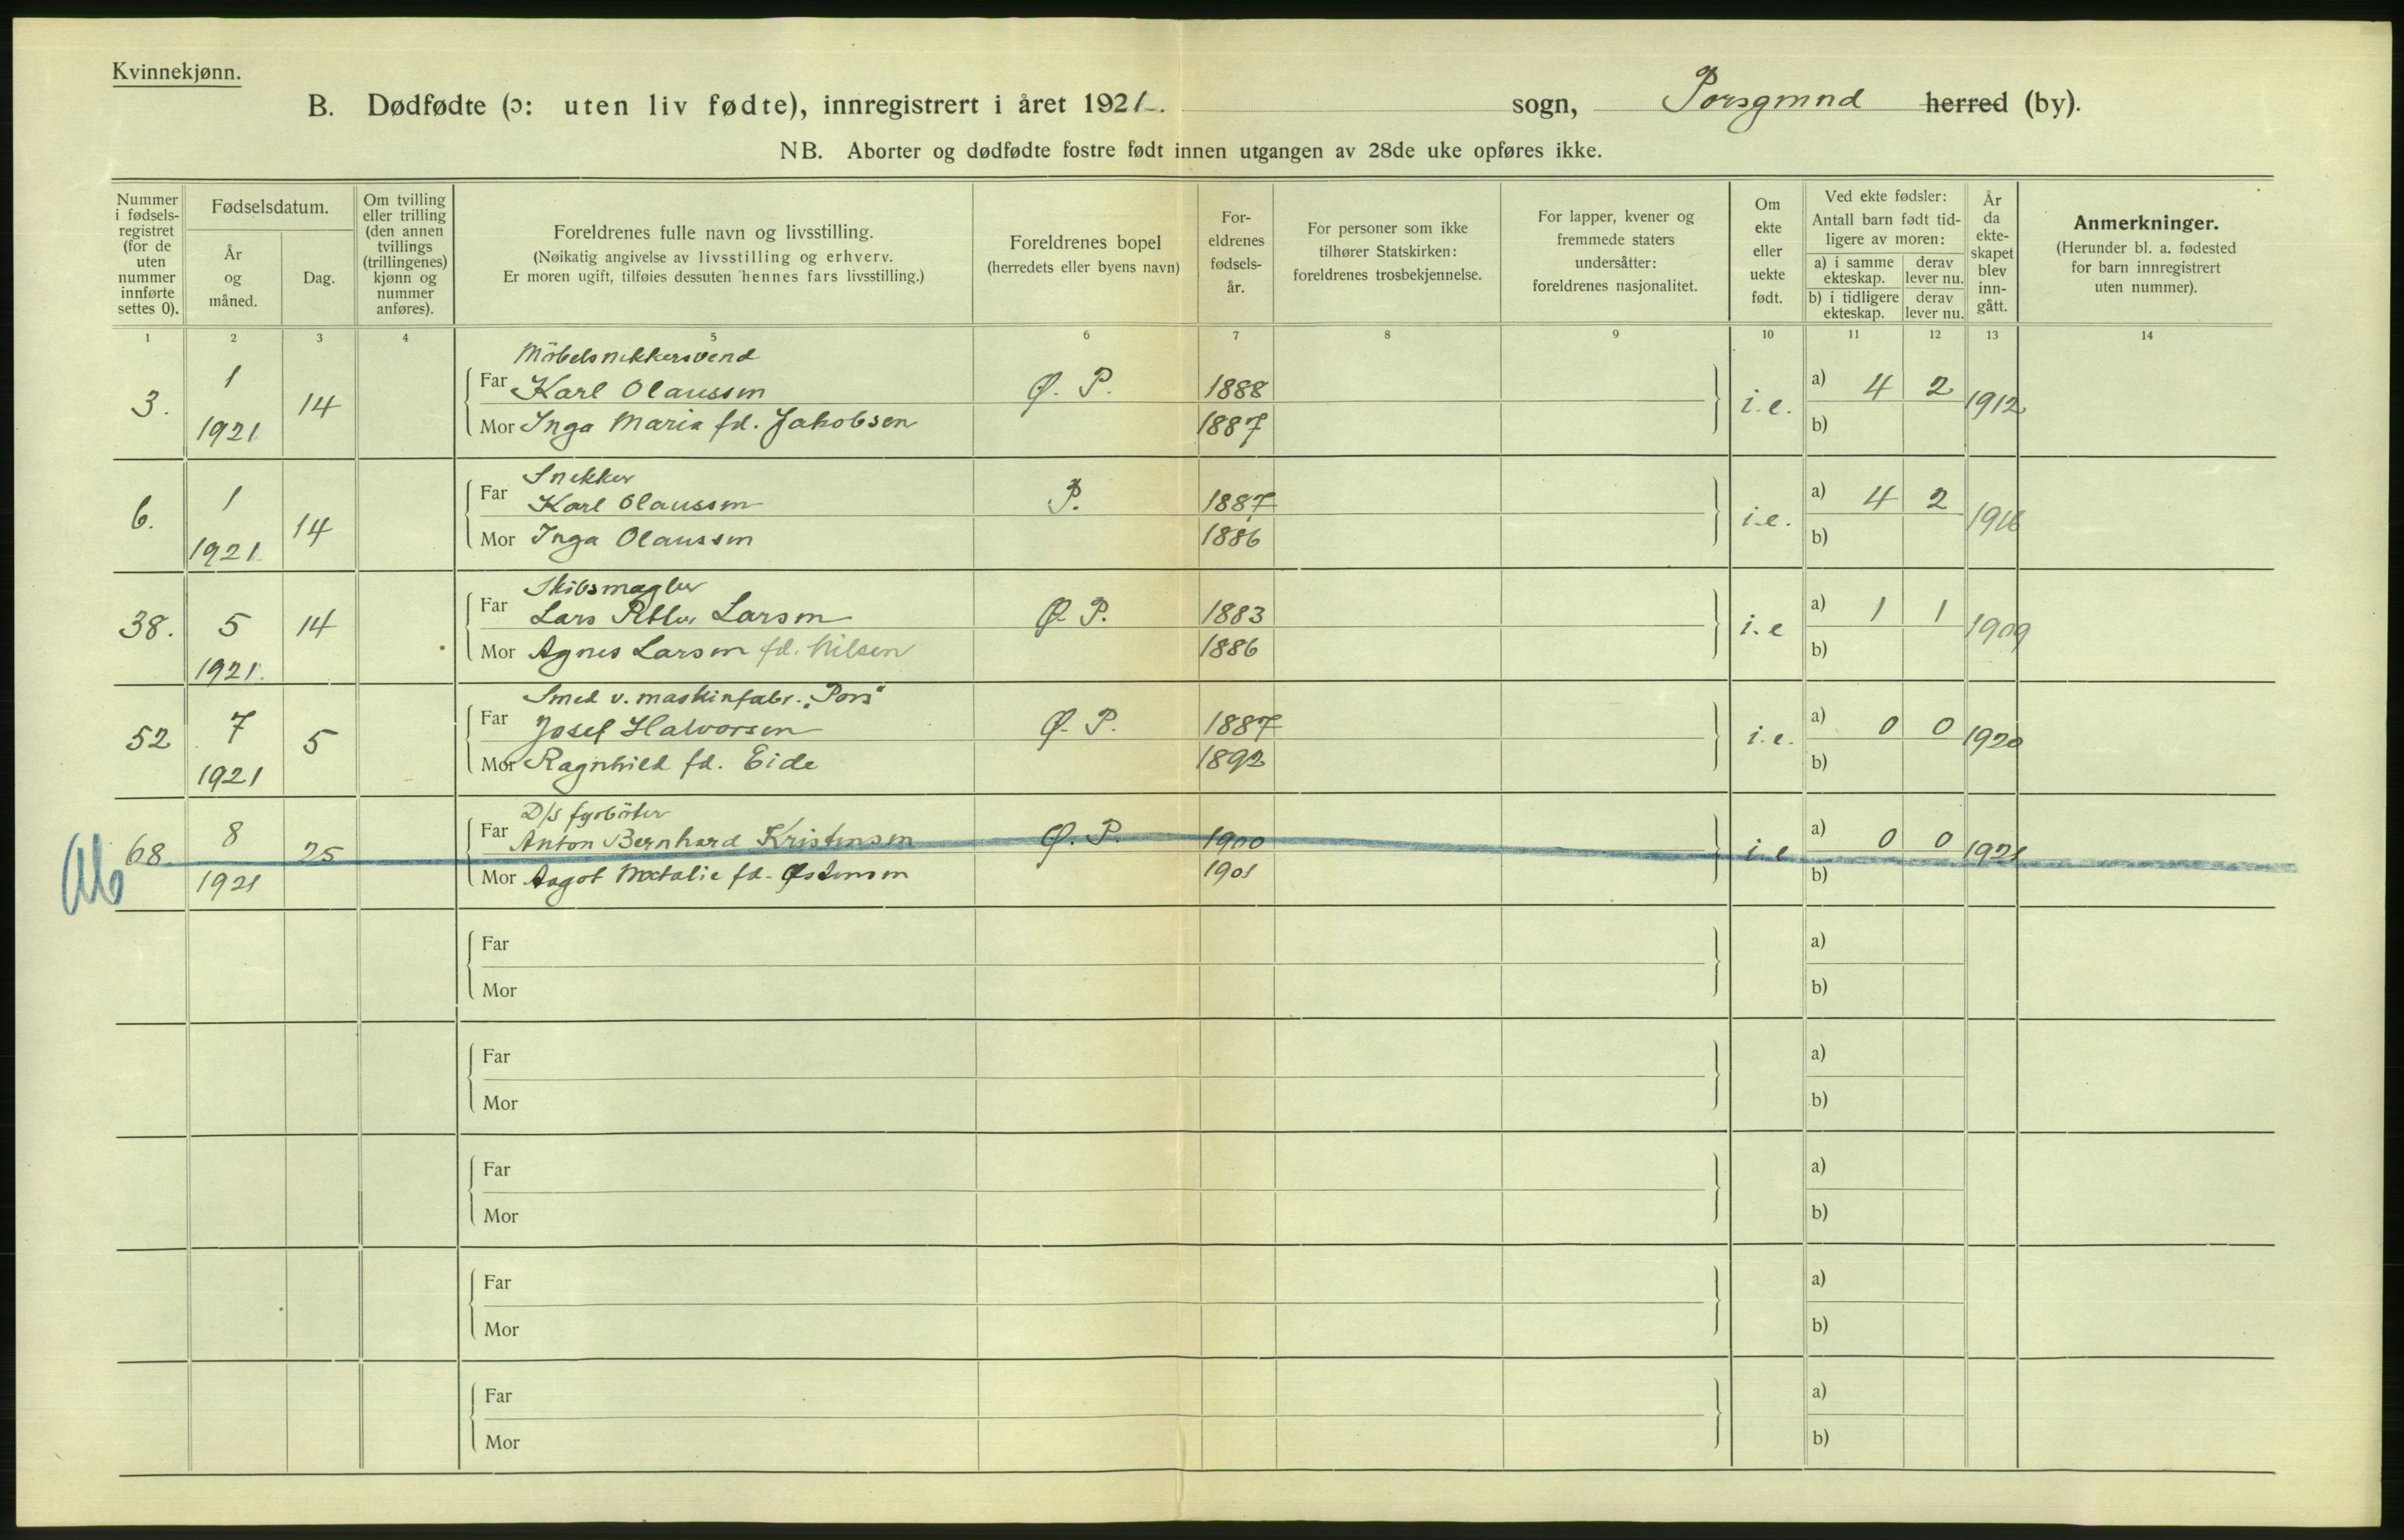 Kvinnekjønn.
B. Dødfødte (ɔ: uten liv fødte), innregistrert i året 1921. sogn, Porsgrund herred (by).
NB. Aborter og dødfødte fostre født innen utgangen av 28de uke opføres ikke.
Nummer i fødsels-registret (for de uten nummer innførte settes 0).
Fødselsdatum.
År og måned.
Dag.
Om tvilling eller trilling (den annen tvillings (trillingenes) kjønn og nummer anføres).
Foreldrenes fulle navn og livsstilling.
(Nøikatig angivelse av livsstilling og erhverv.
Er moren ugift, tilføies dessuten hennes fars livsstilling.)
Foreldrenes bopel
(herredets eller byens navn)
For-eldrenes fødsels-år.
For personer som ikke tilhører Statskirken: foreldrenes trosbekjennelse.
For lapper, kvener og fremmede staters undersåtter: foreldrenes nasjonalitet.
Om ekte eller uekte født.
Ved ekte fødsler:
Antall barn født tid-ligere av moren:
a) i samme ekteskap.
derav lever nu.
b) i tidligere ekteskap.
derav lever nu.
År da ekte-skapet blev inn-gått.
Anmerkninger.
(Herunder bl. a. fødested for barn innregistrert uten nummer).
1 2 3 4 5 6 7 8 9 10 11 12 13 14
Möbelsnekkersvend
3. 1 1921 14 Far Karl Olaussen Ø. P. 1888 i.e. a) 4 2 1912
Mor Inga Maria fd. Jakobsen 1887 b)
Snekker
6. 1 1921 14 Far Karl Olaussen P. 1887 i.e. a) 4 2 1916
Mor Inga Olaussen 1886 b)
Skibsmægler
38. 5 1921. 14 Far Lars Petter Larsen Ø. P. 1883 i.e a) 1 1 1909
Mor Agnes Larsen fd. Nilsen 1886 b)
Smed v. maskinfabr. „Pors"
52 7 1921 5 Far Josef Halvorsen Ø. P. 1887 i.e. a) 0 0 1920
Mor Ragnhild fd. Eide 1892 b)
D/S fyrböter
68 8 1921 25 Far Anton Bernhard Kristensen Ø. P. 1900 i.e a) 0 0 1921
Ab
Mor Aagot Natalie fd. Østensen 1901 b)
Far a)
Mor b)
Far a)
Mor b)
Far a)
Mor b)
Far a)
Mor b)
Far a)
Mor b)